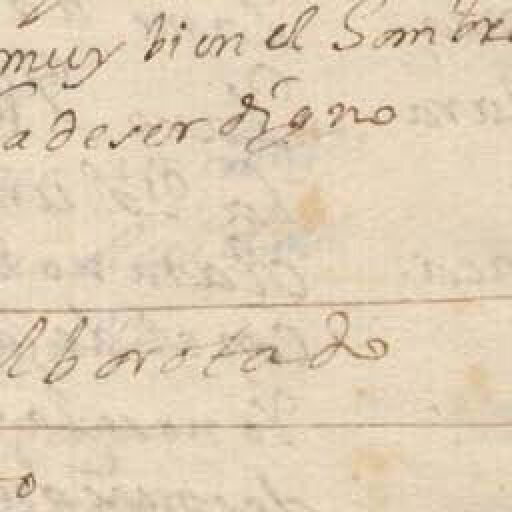 muy bien el Sombre
a de ser digno
lborotado
o